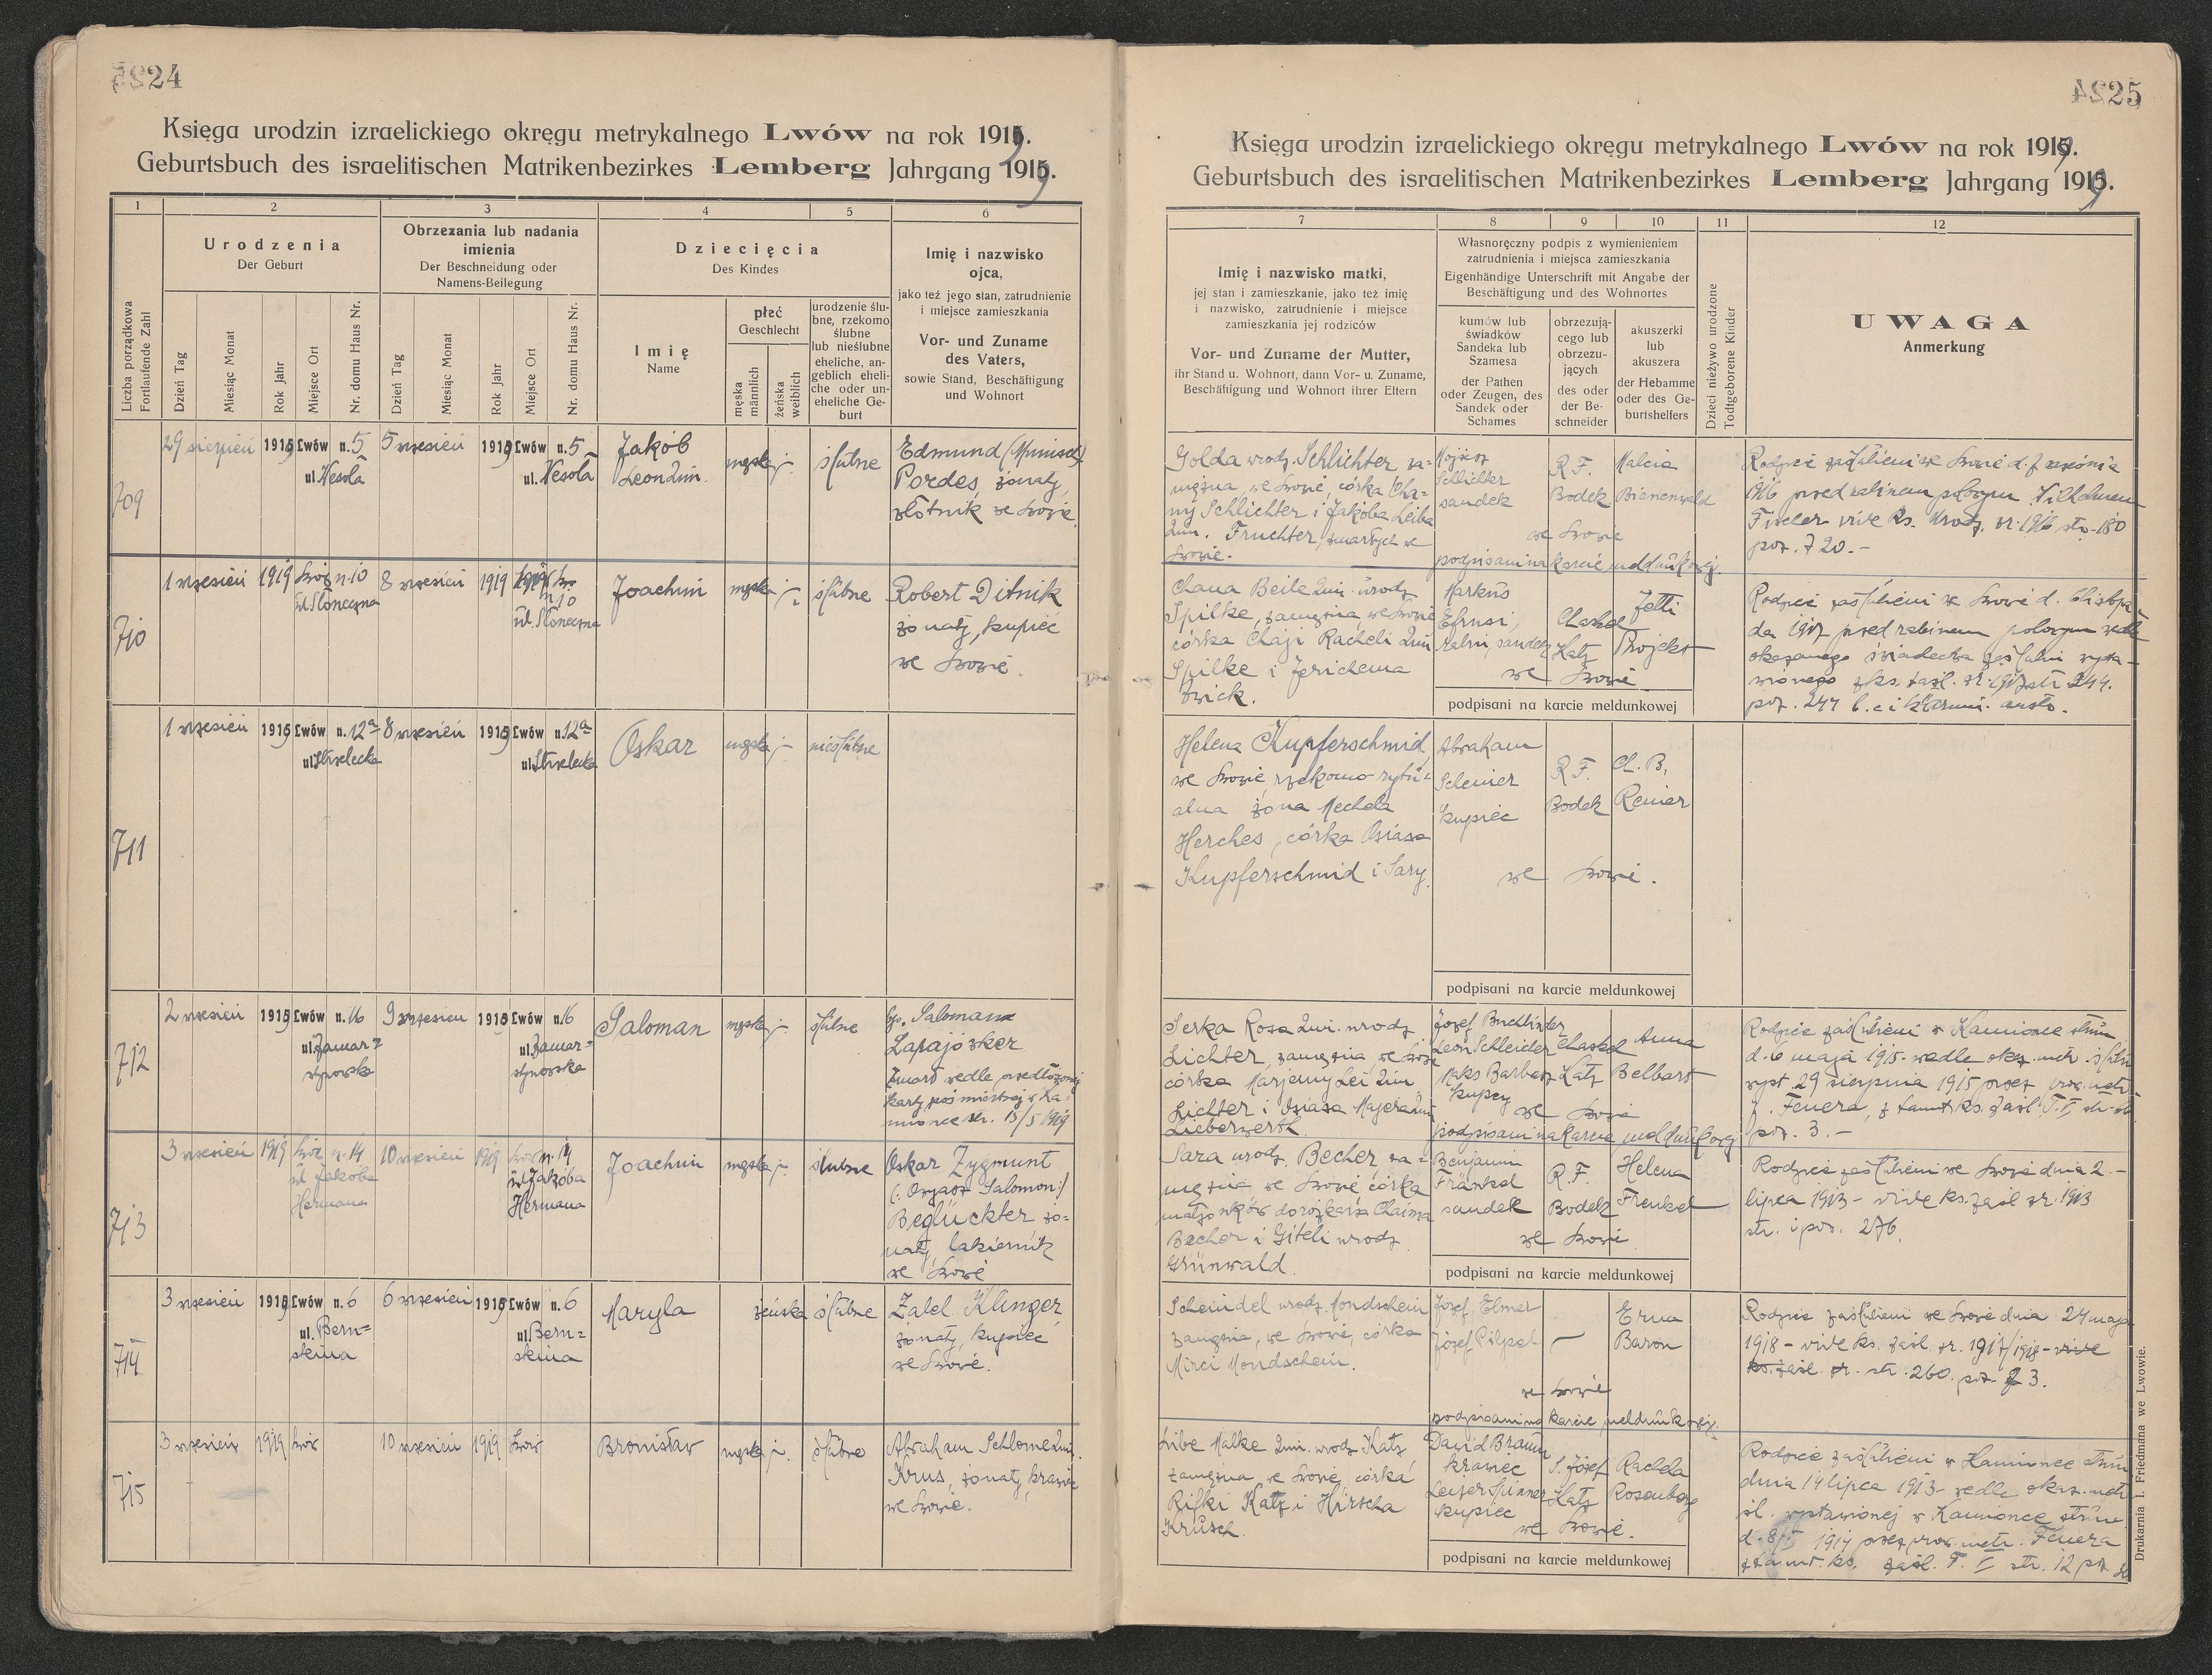 24
Księga urodzin izraelickiego okręgu metrykalnego Lwów na rok 1919.
Geburtsbuch des israelitischen Matrikenbezirkes Lemberg Jahrgang 1919.
1
2
3
4
5
6
Liczba porządkowa
Fortlaufende Zahl
Urodzenia
Der Geburt
Dzień Tag
Miesiąc Monat
Rok Jahr
Miejsce Ort
Nr. domu Haus Nr.
Obrzezania lub nadania
imienia
Der Beschneidung oder
Namens-Beilegung
Dzień Tag
Miesiąc Monat
Rok Jahr
Miejsce Ort
Nr. domu Haus Nr.
Dziecięcia
Des Kindes
Imię
Name
płeć
Geschlecht
męska
männlich
żeńska
weiblich
urodzenie ślu-
bne, rzekomo
ślubne
lub nieślubne
eheliche, an-
geblich eheli-
che oder un-
eheliche Ge-
burt
Imię i nazwisko
ojca,
jako też jego stan, zatrudnienie
i miejsce zamieszkania
Vor- und Zuname
des Vaters,
sowie Stand, Beschäftigung
und Wohnort
709
29 sierpień 1919 Lwów n. 5
ul. Wesoła
5 wrzesień 1919 Lwów n. 5
ul. Wesoła
Jakób
Leon
męska
ślubne
Edmund
Pordes żonaty,
we Lwowie
710
1 wrzesień 1919 Lwów n. 10
ul. Słoneczna
8 wrzesień 1919 Lwów
n 10
ul. Słoneczna
Joachim
męska
ślubne
Robert Ditnik
żonaty, kupiec
we Lwowie.
711
1 wrzesień 1919 Lwów n. 12a
ul. Strzelecka
8 wrzesień 1919 Lwów n. 12a
ul. Strzelecka
Oskar
męska
nieślubne
712
2 wrzesień 1919 Lwów n. 16
ul. Zamar=
stynowska
9 wrzesień 1919 Lwów n. 16
ul. Zamar=
stynowska
Saloman
męska
ślubne
Saloman
Łapajówker
zmarł wedle przedłożonej
karty pośmiertnej w Ka-
mionce str. 15/5 1919
713
3 wrzesień 1919 Lwów n. 14
ul. Jakóba
Hermana
10 wrzesień 1919 Lwów n. 14
ul. Jakóba
Hermana
Joachim
męska
ślubne
Oskar Zygmunt
Salomon:/
Beglückter żo-
naty, lakiernik
we Lwowie
714
3 wrzesień 1919 Lwów n. 6
ul. Bern=
steina
6 wrzesień 1919 Lwów n. 6
ul. Bern=
steina
Maryla
żeńska
ślubne
Zalel Klinger,
żonaty, kupiec
we Lwowie.
715
3 wrzesień 1919 Lwów
10 wrzesień 1919 Lwów
Bronisław
męska
ślubne
Abraham Schlome 2im.
Krus, żonaty, krawiec
we Lwowie.
25
Księga urodzin izraelickiego okręgu metrykalnego Lwów na rok 1919.
Geburtsbuch des israelitischen Matrikenbezirkes Lemberg Jahrgang 1919.
7
8
9
10
11
12
Imię i nazwisko matki,
jej stan i zamieszkanie, jako też imię
i nazwisko, zatrudnienie i miejsce
zamieszkania jej rodziców
Vor- und Zuname der Mutter,
ihr Stand u. Wohnort, dann Vor- u. Zuname,
Beschäftigung und Wohnort ihrer Eltern
Własnoręczny podpis z wymienieniem
zatrudnienia i miejsca zamieszkania
Eigenhändige Unterschrift mit Angabe der
Beschäftigung und des Wohnortes
kumów lub
świadków
Sandeka lub
Szamesa
der Pathen
oder Zeugen, des
Sandek oder
Schames
obrzezują-
cego lub
obrzezu-
jących
des oder
der Be-
schneider
akuszerki
lub
akuszera
der Hebamme
oder des Ge-
burtshelfers
Dzieci nieżywo urodzone
Todtgeborene Kinder
UWAGA
Anmerkung
Golda urodz. Schlichter za=
mężna we Lwowie, córka Cha=
ny Schlichter i Jakóba Leiba
2im. Fruchter, zmarłych we
Lwowie.
Mojżesz
Schlichter
sandek
R. F.
Bodek
Malcia
Bienenwald
we Lwowie
podpisani na karcie meldunkowej.
Rodzice zaślubieni we Lwowie d. 7 czerwca
1916 przed rabinem polowym
vide ks. urodz. zr. 1916 str. 180
poz. 720.-
Chana Beile 2im. urodz
Spilke, zamężna, we Lwowie
córka Chaji Racheli 2im
Spilke i Jerichema
Zwick.
Markus
Efrusi,
rabin, sandek
Chaskel
Katz
Jetti
Projekt
we Lwowie
podpisani na karcie meldunkowej
Rodzice zaślubieni we Lwowie d. listopa-
da 1917 przed rabinem polowym wedle
okazanego świadectwa zaślubin wysta-
wionego z ks. zaśl. zr. 1917 str. 244.
poz. 244
Helena Kupferschmid,
we Lwowie, rzekomo rytu=
alna żona Mechela
Herches, córka Osiasa
Kupferschmid i Sary.
Abraham
kupiec
R. F.
Bodek
Ch. B.
Reiner
we Lwowie.
podpisani na karcie meldunkowej
Serka Rosa 2im. urodz
Lichter, zamężna we Lwowie
córka Marjemy Lei 2im
Lichter i Osiasa Majera 2im
Lieberzerch.
Józef Buchbinder
Leon Schleicher
Maks Barbasz
kupcy
Chaskel
Katz
Anna
Belbart
we Lwowie
podpisani na karcie meldunkowej
Rodzice zaślubieni w Kamionce strum
d. 6 maja 1915 wedle okaz. metr. ślubu
wyst. 29 sierpnia 1915 przez prow. metr.
J. Feuera, z tamt. ks. zaśl. T. I str.
poz. 3.-
Sara urodz. Becher, za=
mężna we Lwowie córka
małżonków dorożkarza Chaima
Becher i Giteli urodz.
Grünwald.
Benjamin
Fränkel
sandek
R. F.
Bodek
Helena
Frenkel
we Lwowie
podpisani na karcie meldunkowej
Rodzice zaślubieni we Lwowie dnia 2.-
lipca 1913 - vide ks. zaśl zr. 1913
str. i poz. 276.
Scheindel urodz. Mondschein
zamężna, we Lwowie, córka
Mirci Mondschein.
Józef Elmer
Józef Pilpel
Erna
Baron
we Lwowie
podpisani na karcie meldunkowej.
Rodzice zaślubieni we Lwowie dnia 24 maja
1918 - vide ks. zaśl. zr. 1917/1918 - vide
ks. zaśl. zr. str. 260. poz. 3.
Libe Malke 2im. urodz Katz
zamężna, we Lwowie, córka
Rifki Katz i Hirscha
Krusch.
Dawid Braun
krawiec
Leiser Spinner
kupiec
S. Józef
Katz
Rachela
Rosenberg
we Lwowie.
podpisani na karcie meldunkowej
Rodzice zaślubieni w Kamionce strum
dnia 14 lipca 1913 - wedle okaz. metr
śl. wystawionej w Kamionce strum.
1914 przez prow. metr. Feuera
z tamt. ks. zaśl. T. I str. 12 poz.
Drukarnia I. Friedmana we Lwowie.